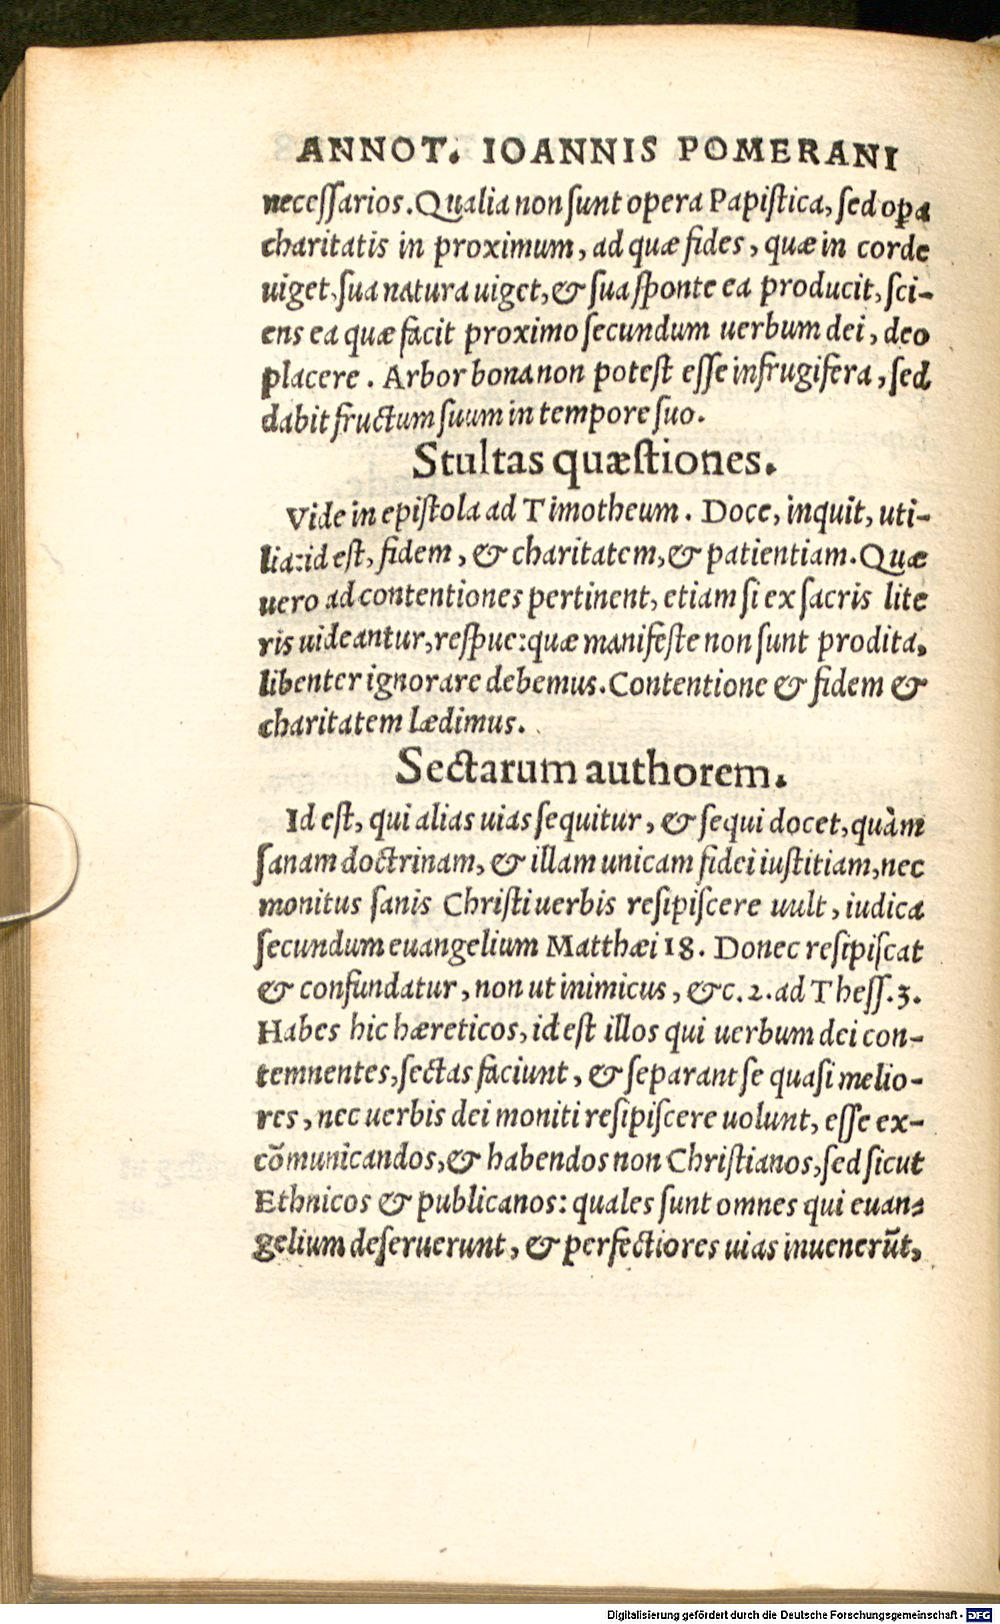 ANNOT. IOANNIS POMERANI
neceſſarios. Qualia non ſunt opera Papiſtica, ſed oꝑa
charitatis in proximum, ad quæ fides, quæ in corde
uiget, ſua natura uiget, & ſua ſponte ea producit, ſci-
ens ea quæ facit proximo ſecundum uerbum dei, deo
placere. Arbor bona non poteſt eſſe infrugifera, ſed
dabit fructum ſuum in tempore ſuo.
Stultas quæſtiones.
Vide in epiſtola ad Timotheum. Doce, inquit, uti-
lia: id eſt, fidem, & charitatem, & patientiam. Quæ
uero ad contentiones pertinent, etiam ſi ex ſacris lite
ris uideantur, reſpue: quæ manifeſte non ſunt prodita,
libenter ignorare debemus. Contentione & fidem &
charitatem lædimus.
Sectarum authorem.
Id eſt, qui alias uias ſequitur, & ſequi docet, quàm
ſanam doctrinam, & illam unicam fidei iuſtitiam, nec
monitus ſanis Chriſti uerbis reſipiſcere uult, iudica
ſecundum euangelium Matthæi 18. Donec reſipiſcat
& confundatur, non ut inimicus, &c. 2. ad Theſſ. 3.
Habes hic hæreticos, id eſt illos qui uerbum dei con-
temnentes, ſectas faciunt, & ſeparant ſe quaſi melio-
res, nec uerbis dei moniti reſipiſcere uolunt, eſſe ex-
cōmunicandos, & habendos non Chriſtianos, ſed ſicut
Ethnicos & publicanos: quales ſunt omnes qui euan-
gelium deſeruerunt, & perfectiores uias inuenerūt,
Digitalisierung gefördert durch die Deutsche Forschungsgemeinschaft - DFG